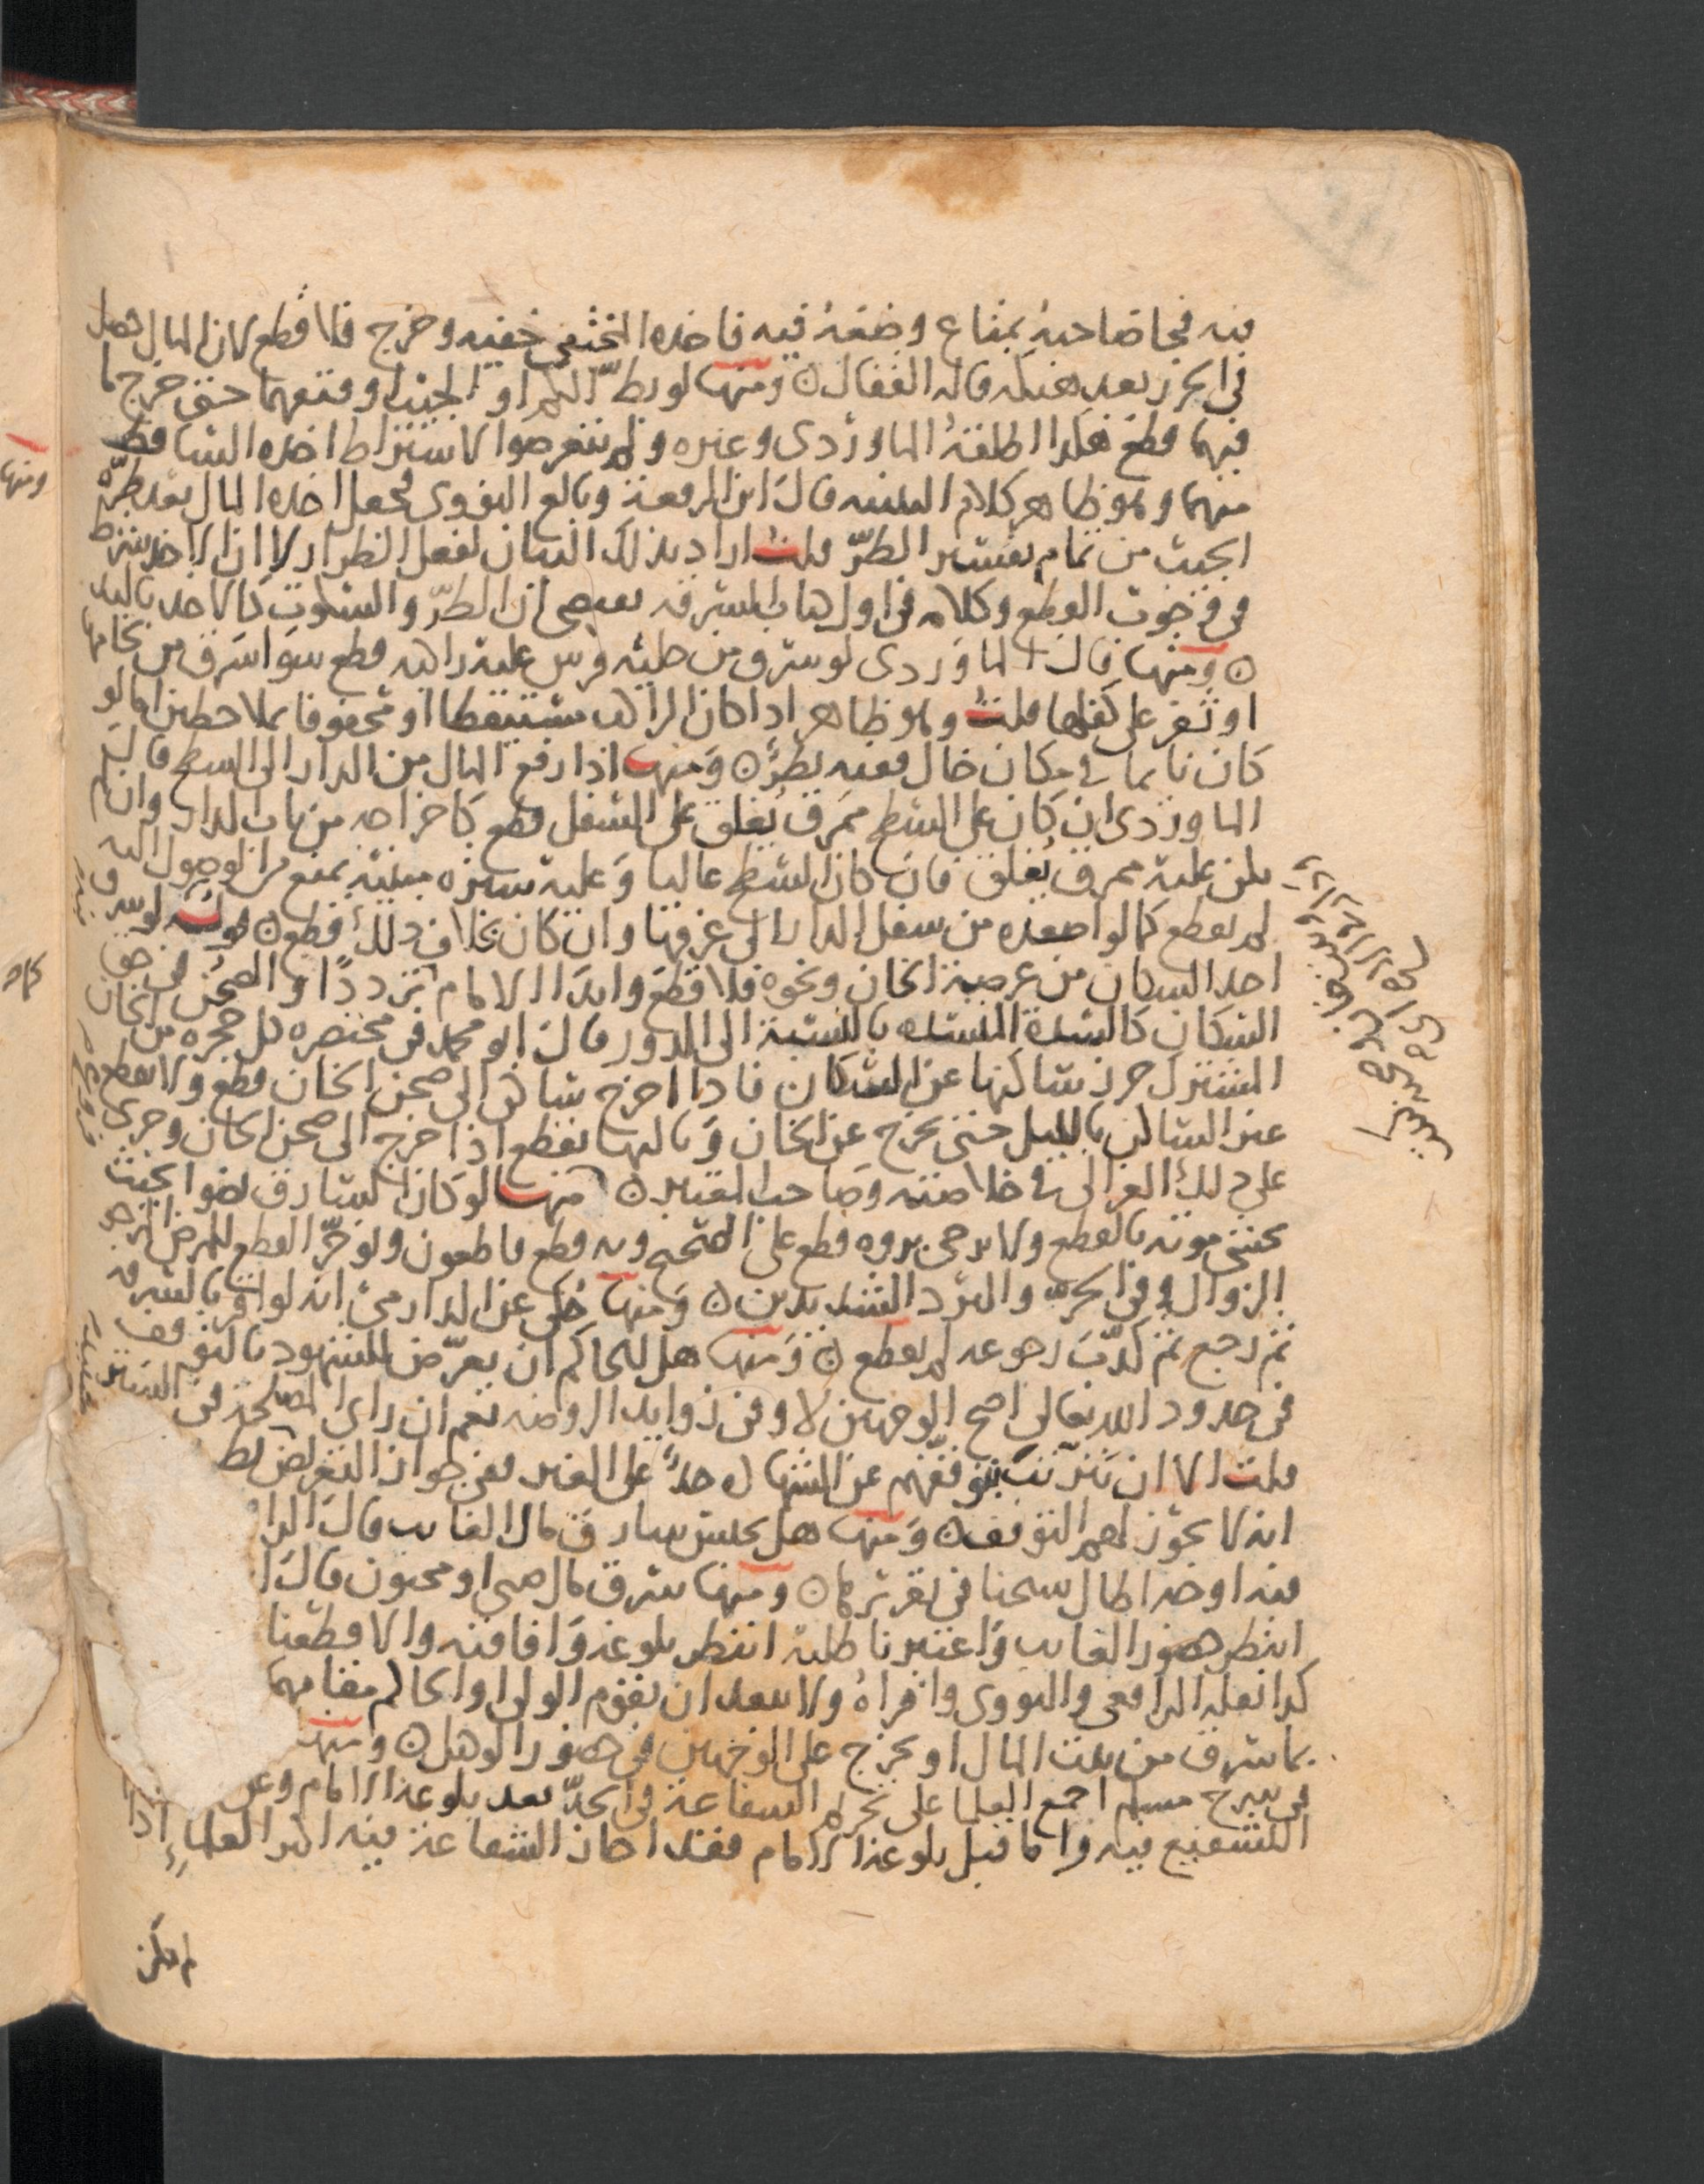 فيه فجا صاحبه بمتاع وضعه فيه فاخذه المختفي خفيه وخرج فلا قطع لان المال حصل
في الحرز بعد هتكه قاله القفال ومنها لو بط الكم او الجيب او فتقهما حتى خرج ما
فيهما قطع هكذا اطلقه الماوردي وغيره ولم يتعرضوا لاشتراط اخذه الساقط
منهما وهو ظاهر كلام التنبيه قال ابن الرفعة وبالغ النووي فجعل اخذه المال بعد طره
الجيب من تمام تفسير الطر قلت اراد بذلك البيان لفعل الطرار لا ان الاخذ شرط
في وجوب القطع وكلامه في اول باب السرقه يقتضي ان الطر والسكوت كالاخذ باليد
ومنها قال الماوردي لو سرق من حلية فرس عليه راكبه قطع سوا سرق من لجامها
او ثفر على كفلها قلت وهو ظاهر اذا كان الراكب مستيقظا او محفوفا بملاحظين اما لو
كان نايما في مكان خال ففيه نظر ومنها اذا رفع المال من الدار الى السطح قال
الماوردي ان كان على السطح ممرق يغلق على السفل قطع كاخراجه من باب الدار وان لم
يكن عليه ممرق يغلق فان كان السطح عاليا وعليه ستره مبنيه تمنع من الوصول اليه
لم يقطع كما لو اصعده من سفل الدار الى غرفتها وان كان بخلاف ذلك قطع لو سرق
احد السكان من عرصة الخان ونحوه فلا قطع وابدا الامام ترددا والصحن في حق
السكان كالسكة المنسده بالنسبة الى الدور قال ابو محمد في مختصره كل حجره من الخان
المشترك حرز لساكنها عن السكان فاذا اخرج سارق الى صحن الخان قطع ولا يقطع
غير الساكن بالليل حتى يخرج عن الخان وبالنهار يقطع اذا خرج الى صحن الخان وجرى
على ذلك الغزالي في خلاصته وصاحب المعتبر منها لو كان السارق نضوا بحيث
يخشى موته بالقطع ولا يرجى بروه قطع على الصحيح وبه قطع قاطعون ويوخر القطع للمرض المرجو
الزوال وفي الحر والبرد الشديدين ومنها حكى عن الدارمي انه لو اقر بالسرقه
ثم رجع ثم كذب رجوعه لم يقطع ومنها هل للحاكم ان يعرض للشهود بالتوقف
في حدود الله تعالى اصح الوجهين لا وفي زوايد الروضه نعم ان راى المصلحة في الستر
قلت الا ان يترتب بتوقفهم عن الشهاده حد على الغير ففي جواز التعريض نظر
انه لا يجوز لهم التوقف ومنها هل يحبس سارق مال الغايب قال الرا
فيه اوجه اطال شيخنا في تقريرها ومنها سرق مال صبي او مجنون قال ا
انتظر حضور الغايب واعتبرنا طلبه انتظر بلوغه وافاقته والا قطعنا
كذا نقله الرافعي والنووي واقراه ولا يبعد ان يقوم الولي او الحاكم مقامهما
بما سرق من بيت المال او يخرج على الوجهين في حضور الوكيل ومنها
في شرح مسلم اجمع العلما على تحريم الشفاعة في الحد بعد بلوغه الامام وعن
التشفيع فيه واما قبل بلوغه الامام فقد اجاز الشفاعة فيه اكثر العلماء اذا
لم يكن